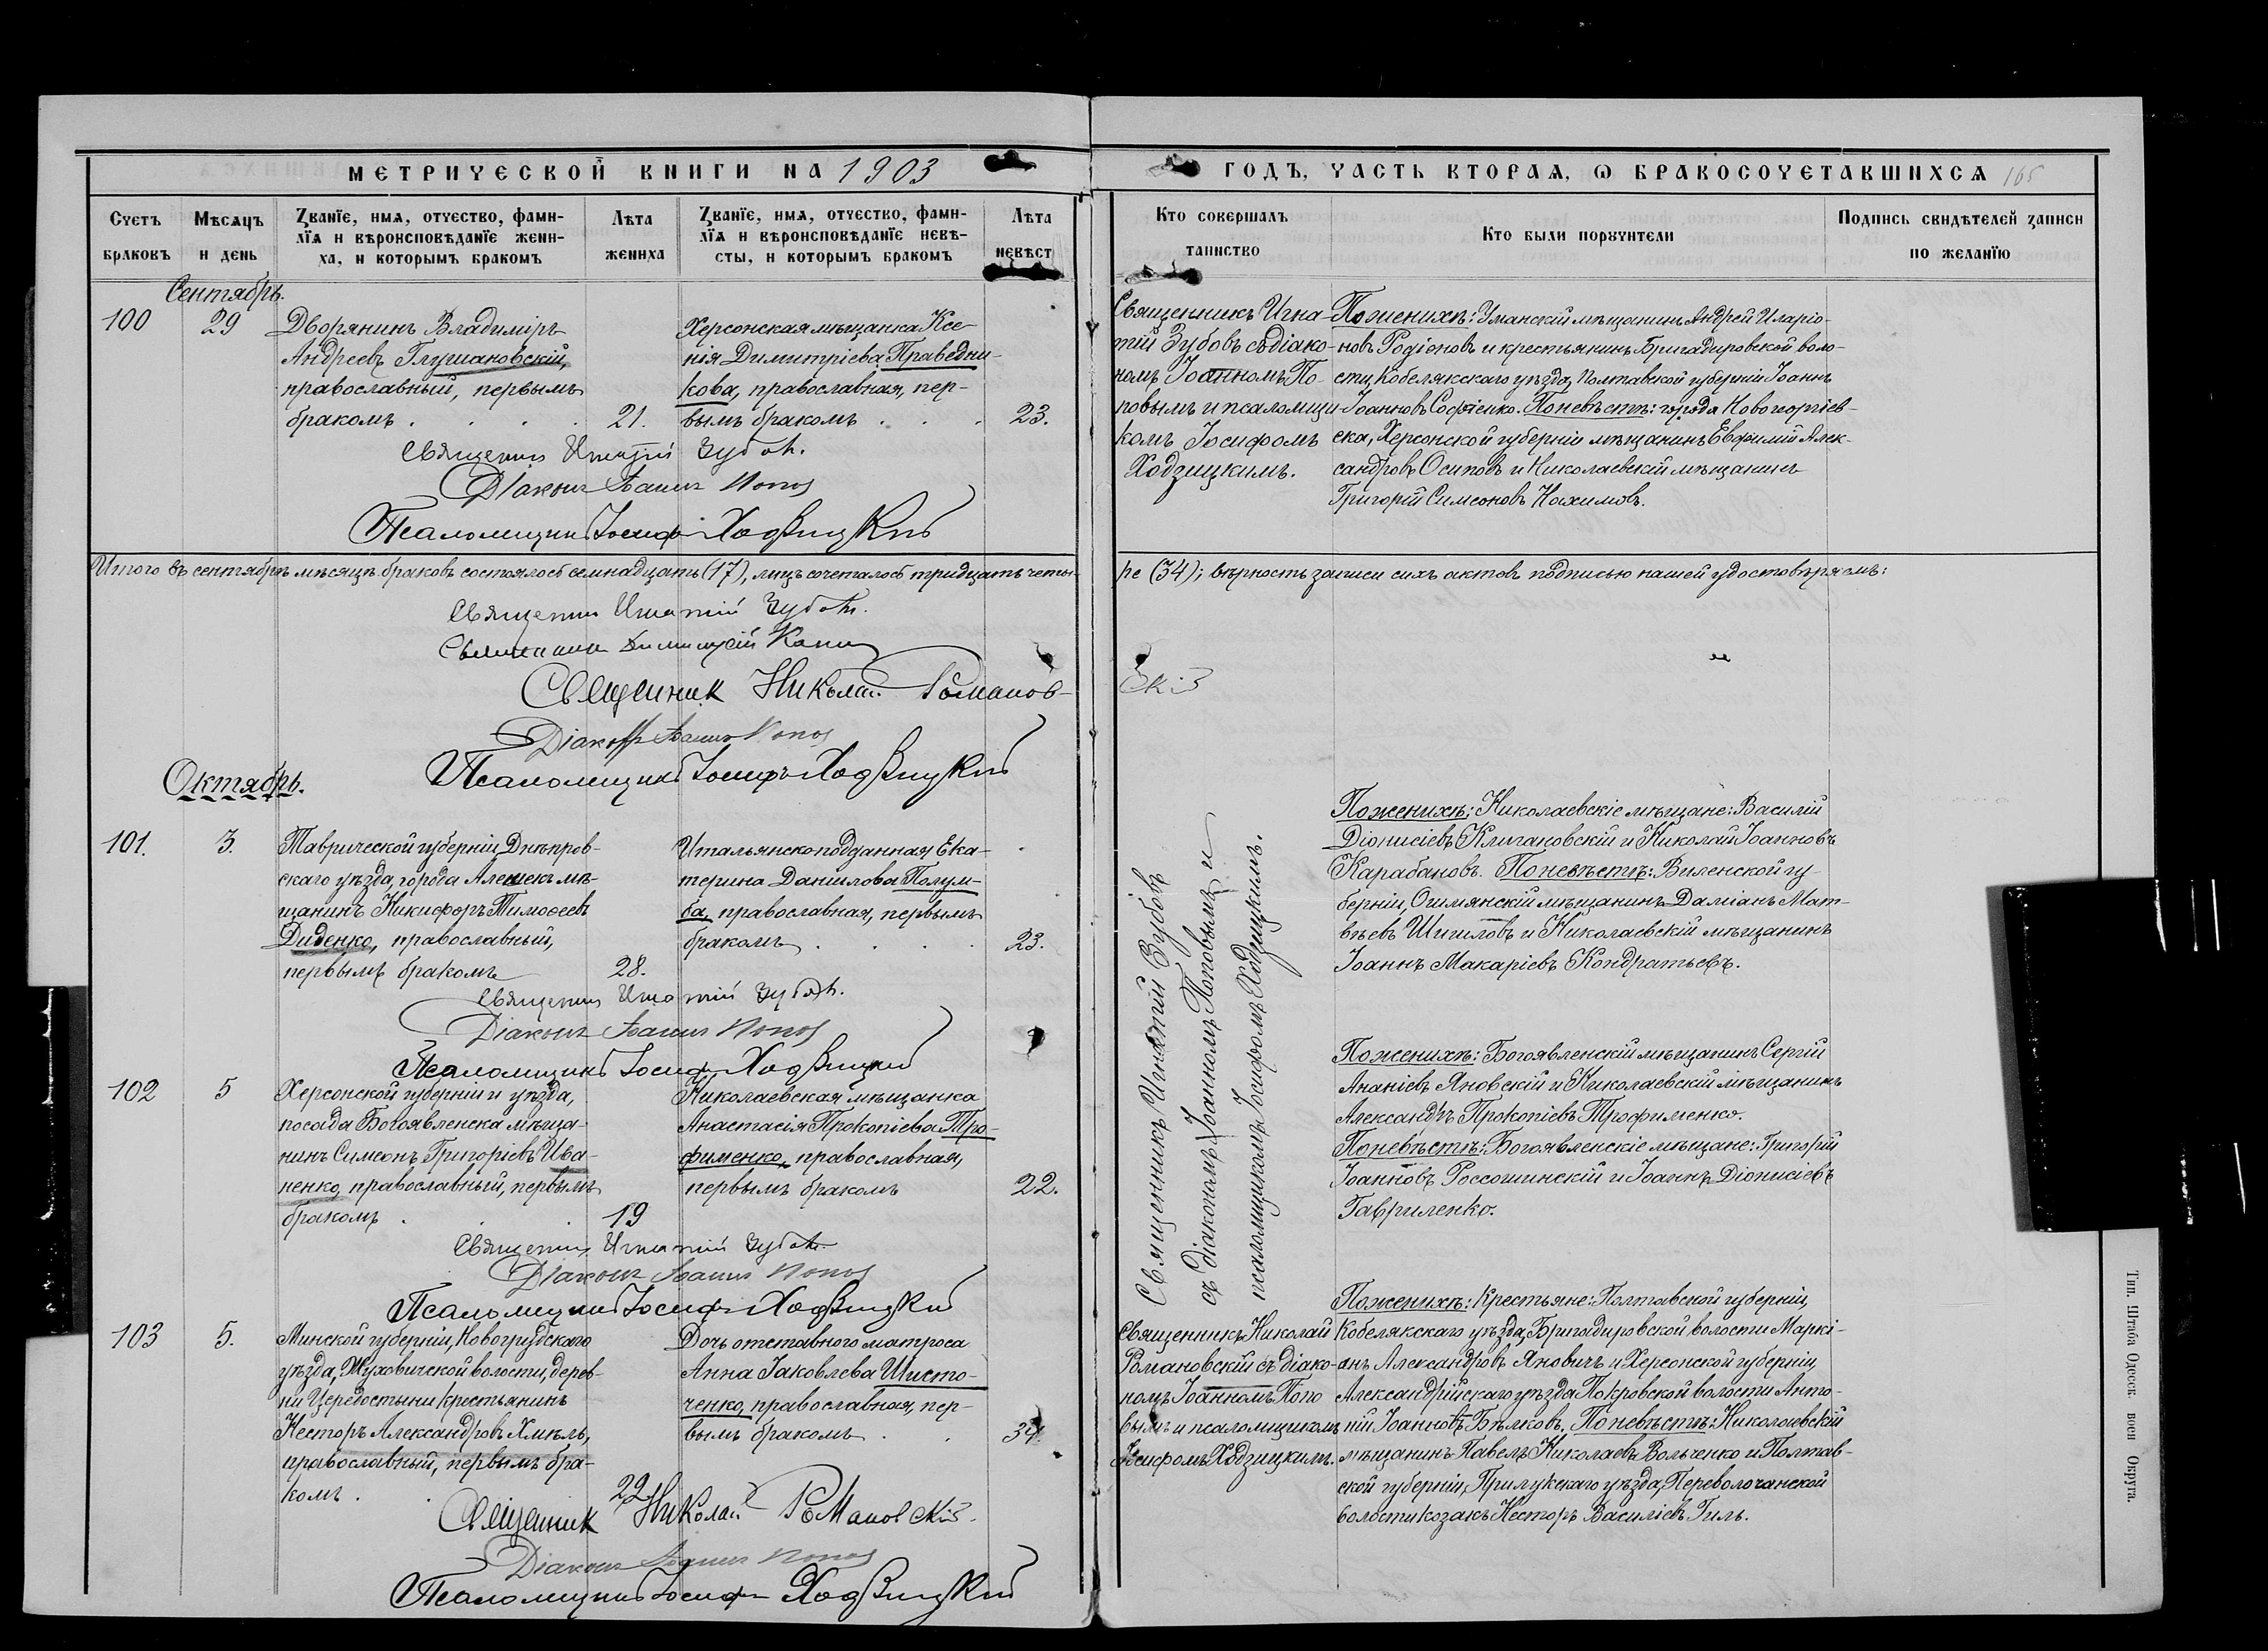 МЕТРИЧЕСКОЙ КНИГИ НА 1903
ГОДЪ, ЧАСТЬ ВТОРАЯ, Ѡ БРАКОСОЧЕТАВШИХСЯ 165
Счетъ браковъ
Мѣсяцъ и день
Званїе, имя, отчество, фами-
лїя и вѣроисповѣданїе жени-
ха, и которымъ бракомъ
Лѣта жениха
Званїе, имя, отчество, фами-
лїя и вѣроисповѣданїе невѣ-
сты, и которымъ бракомъ
Лѣта невѣст
Кто совершалъ таинство
Кто были поручители
Подпись свидѣтелей записи
по желанїю
Сентябрь.
100
29
Дворянинъ Владиміръ
Андреевъ Глушановскій,
православный, первымъ
бракомъ . . . . 21.
Херсонская мѣщанка Ксе-
нія Димитріева Праведни-
кова, православная, пер-
вымъ бракомъ . . . 23.
Священникъ Игна-
тій Зубовъ съ діако-
номъ Іоанномъ По-
повымъ и псаломщи-
комъ Іосифомъ
Ходзицкимъ.
По женихѣ: Уманскій мѣщанинъ Андрей Иларіо-
новъ Родіоновъ и крестьянинъ Бригадировской воло-
сти, Кобелякскаго уѣзда, Полтавской губерніи Іоаннъ
Іоанновъ Софіенко. По невѣстѣ: города Новогеоргіев-
ска, Херсонской губерніи мѣщанинъ Евфимій Алек-
сандровъ Осиповъ и Николаевскій мѣщанинъ
Григорій Симеоновъ Нахимовъ.
Священник Игнатій Зубовъ.
Діаконъ Іоаннъ Попов
Псаломщикъ Іосифъ Ходзицкій
Итого въ сентябрѣ мѣсяцѣ браковъ состоялось семнадцать (17), лицъ сочеталось тридцать четы-
ре (34); вѣрность записи сихъ актовъ подписью нашей удостовѣряемъ:
Священник Игнатій Зубовъ.
Священник Димитрій
Священник Николай Романов-
скій
Діаконъ Іоаннъ Попов
Псаломщикъ Іосифъ Ходзицкій
Октябрь.
101.
3.
Таврической губерніи, Днѣпров-
скаго уѣзда, города Алешекъ мѣ-
щанинъ Никифоръ Тимофеевъ
Диденко, православный,
первымъ бракомъ 28.
Итальянскоподданная Ека-
терина Даніилова Полум-
ба, православная, первымъ
бракомъ . . . . 23.
Священникъ Игнатій Зубовъ
съ діакономъ Іоанномъ Поповымъ и
псаломщикомъ Іосифомъ Ходзицкимъ.
По женихѣ: Николаевскіе мѣщане: Василій
Діонисіевъ Климановскій и Николай Іоанновъ
Карабановъ. По невѣстѣ: Виленской гу-
берніи, Ошмянскій мѣщанинъ Даміанъ Мат-
вѣевъ Шигиловъ и Николаевскій мѣщанинъ
Іоаннъ Макаріевъ Кондратьевъ.
Священник Игнатій Зубовъ.
Діаконъ Іоаннъ Попов
Псаломщикъ Іосифъ Ходзицкій
102
5
Херсонской губерніи и уѣзда,
посада Богоявленска мѣща-
нинъ Симеонъ Григоріевъ Ива-
ненко, православный, первымъ
бракомъ . . . 19
Николаевская мѣщанка
Анастасія Прокопіева Тро-
фименко, православная,
первымъ бракомъ 22.
По женихѣ: Богоявленскій мѣщанинъ Сергій
Ананіевъ Яновскій и Николаевскій мѣщанинъ
Александръ Прокопіевъ Трофименко.
По невѣстѣ: Богоявленскіе мѣщане: Григорій
Іоанновъ Россошинскій и Іоаннъ Діонисіевъ
Гавриленко.
Священник Игнатій Зубовъ.
Діаконъ Іоаннъ Попов
Псаломщикъ Іосифъ Ходзицкій
103
5.
Минской губерніи, Новогрудскаго
уѣзда, Жуховичской волости, дерев-
ни Цередостыни крестьянинъ
Несторъ Александровъ Хмѣль,
православный, первымъ бра-
комъ . . . 22.
Дочь отставного матроса
Анна Іаковлева Шисто-
ченко, православная, пер-
вымъ бракомъ . . 34.
Священникъ Николай
Романовскій съ діако-
номъ Іоанномъ Попо
вымъ и псаломщикомъ
Іосифомъ Ходзицкимъ.
По женихѣ: Крестьяне: Полтавской губерніи,
Кобелякскаго уѣзда, Бригадировской волости Маркі-
анъ Александровъ Яновичъ и Херсонской губерніи,
Александрійскаго уѣзда Покровской волости Анто-
ній Іоанновъ Бѣлковъ. По невѣстѣ: Николаевскій
мѣщанинъ Павелъ Николаевъ Вольченко и Полтав-
ской губерніи, Прилукскаго уѣзда, Переволочанской
волости козакъ Несторъ Василіевъ Гиль.
Священник Николай Романовскій.
Діаконъ Іоаннъ Попов
Псаломщикъ Іосифъ Ходзицкій
Тип. Штаба Одесск. воен Округа.